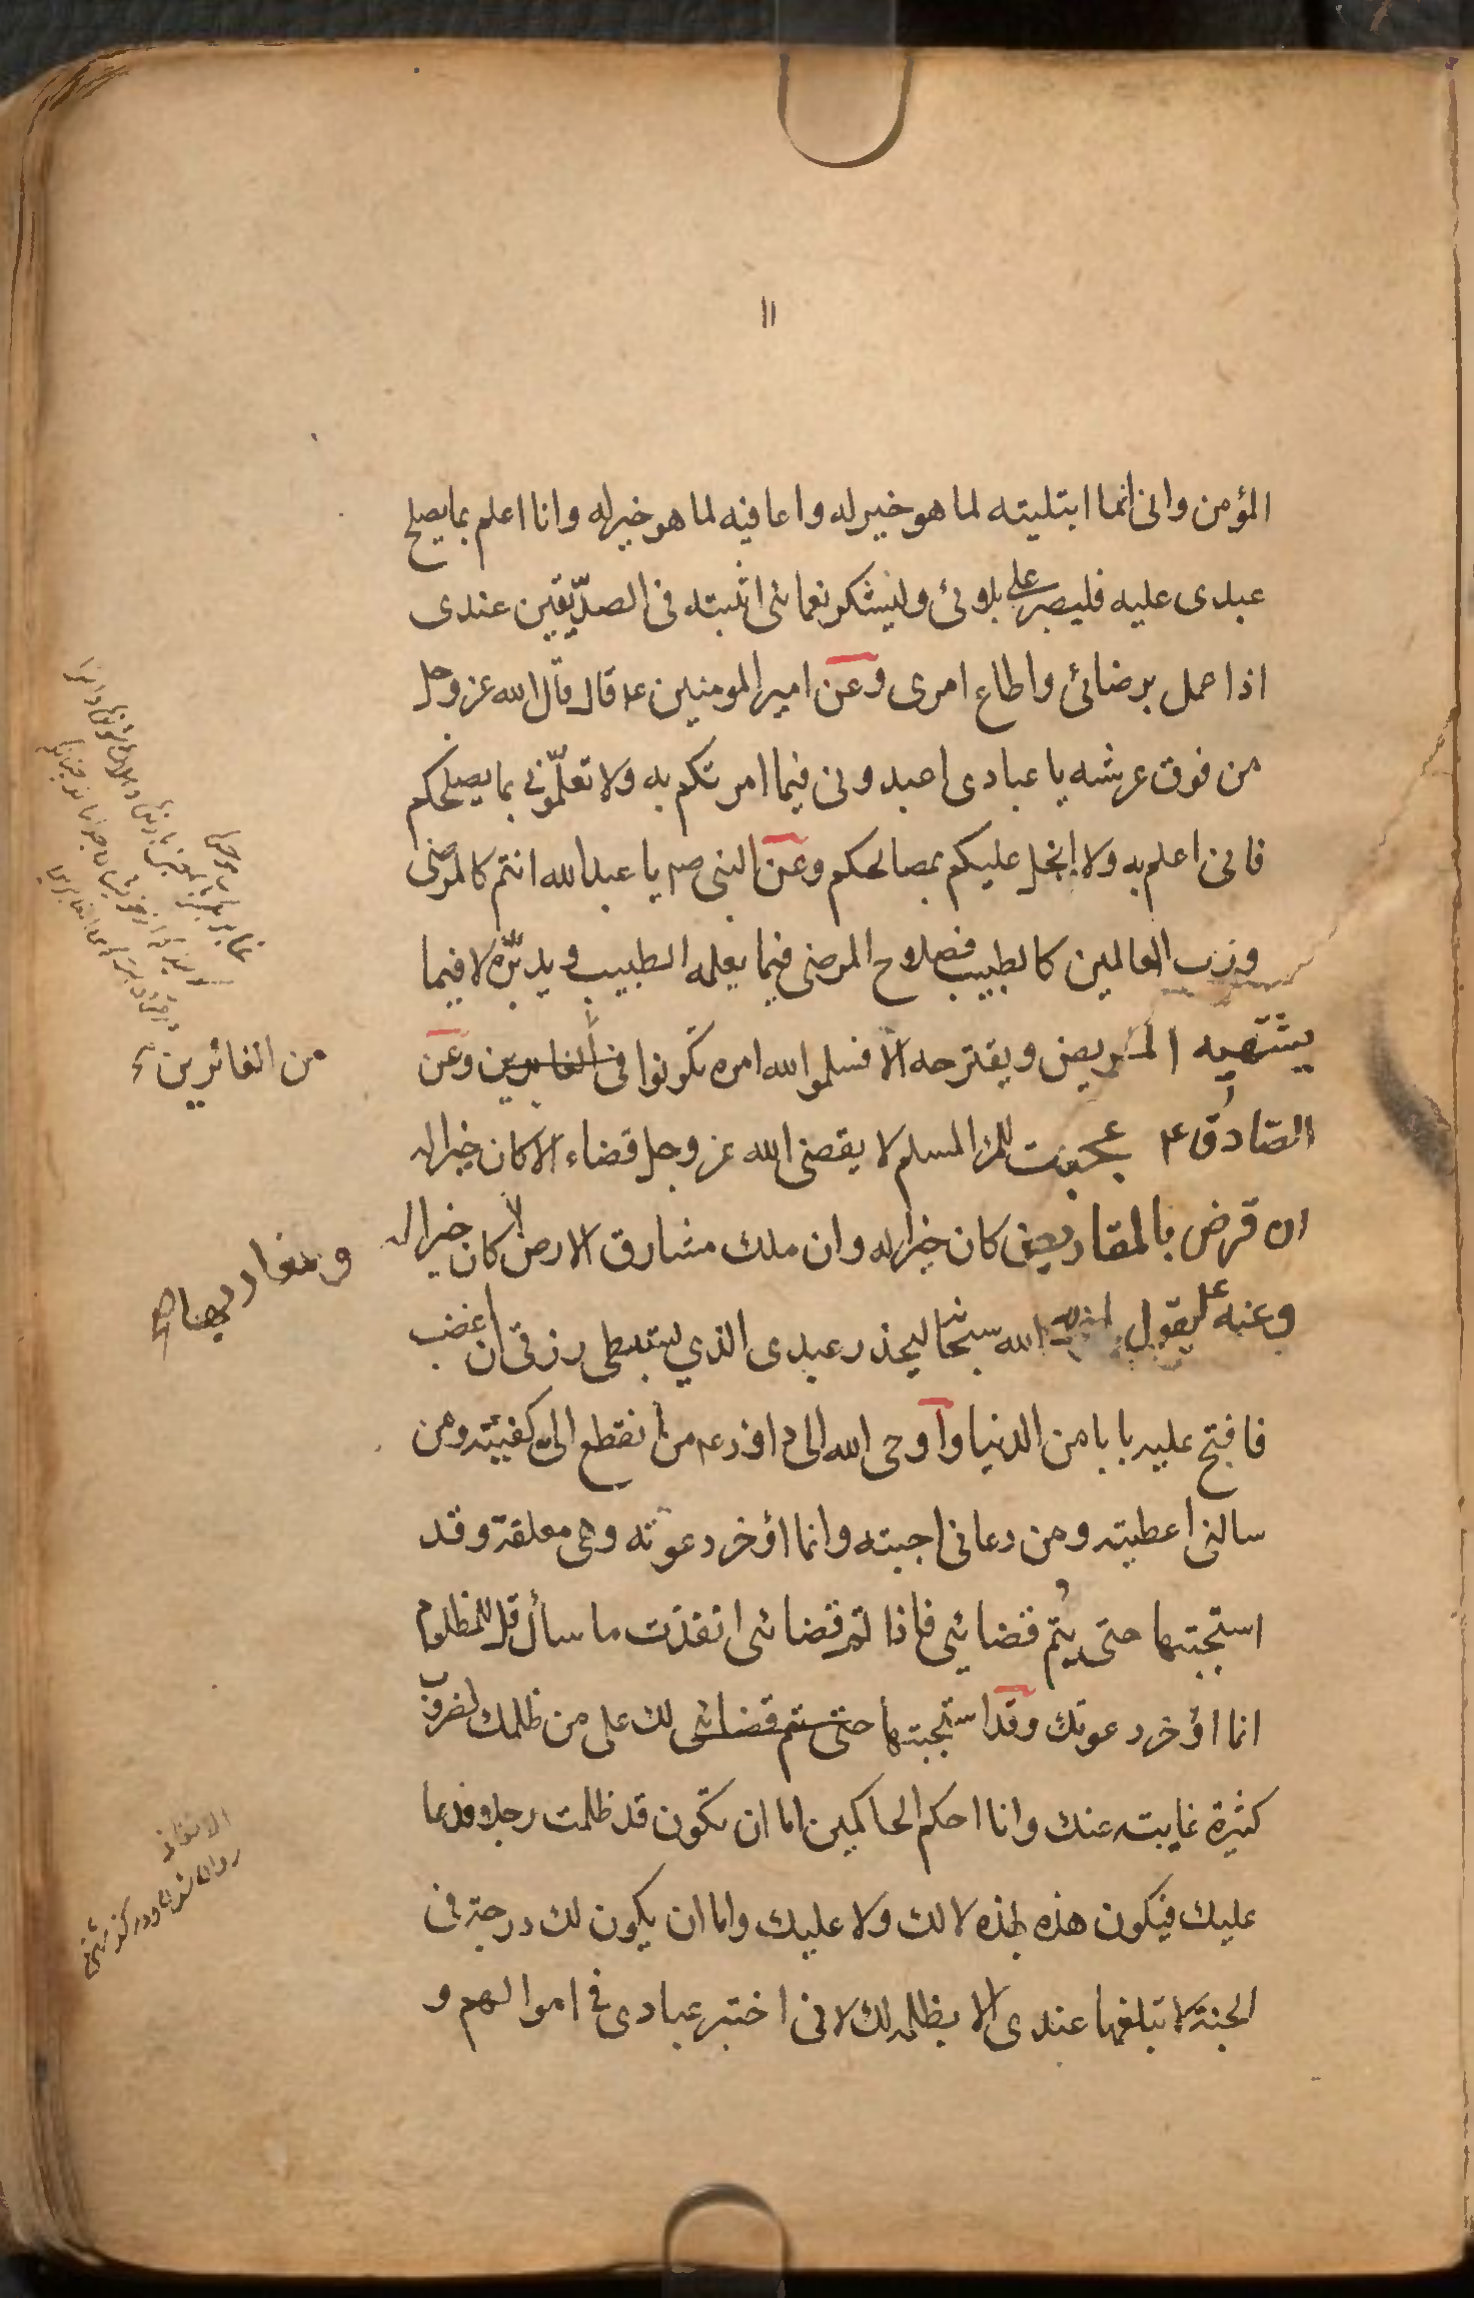 ١١
المؤمن وانى انما ابتليته لما هو خير له واعافيه لما هو خير له وانا اعلم بما يصلح
عبدى عليه فليصبر على بلوئى وليشكر نعمائى اثبته فى الصدّيقين عندى
اذا عمل برضائى واطاع امرى وعن امير المومنين ع قال قال الله عز وجل
من فوق عرشه يا عبادى اعبدونى فيما امرتكم به ولا تعلّمونى بما يصلحكم
فانى اعلم به ولا ابخل عليكم بمصالحكم وعن النبى ص يا عباد الله انتم كالمرضى
ورب العالمين كالطبيب فصلاح المرضى فيما يعلمه الطبيب ويدبّره لا فيما
يشتهيه المريض ويقترحه الا فسلموا الله امره تكونوا فى الفايزين وعن
من الفائزين
الصّادق ع عجبت للمرء المسلم لا يقضى الله عز وجل قضاء الا كان خيرا له
ان قرض بالمقاريض كان خيرا له وان ملك مشارق الارض كان خيرا له
ومغاربها
وعنه ع يقول الله سبحانه ليحذر عبدى الذي يستبطى رزقى ان اغضب
فافتح عليه بابا من الدنيا واوحى الله الى داود ع من انقطع الىّ كفيته ومن
سالنى اعطيته ومن دعانى اجبته وانما اؤخر دعوته وهى معلقة وقد
استجبتها حتى يتم قضائى فاذا تم قضائى انفذت ما سأل قل للمظلوم
انما اؤخر دعوتك وقد استجبتها حتى يتم قضائى لك على من ظلمك لضروب
كثيرة غابت عنك وانا احكم الحاكمين اما ان تكون قد ظلمت رجلا فدعا
عليك فتكون هذه بهذه لا لك ولا عليك واما ان يكون لك درجة فى
الجنة لا تبلغها عندى الا بظلمه لك لانى اختبر عبادى فى اموالهم و